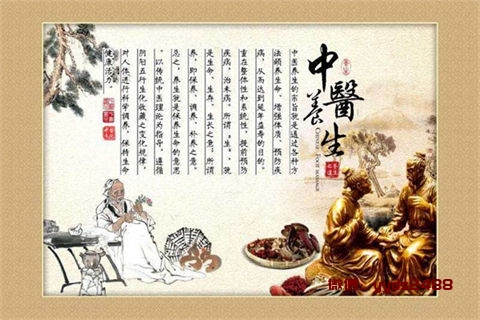 中醫養生
CHINESE FOOT MASSAGE
中医养生的宗旨就是通过各种方
法颐养生命、增强体质、预防疾
病,从而达到延年益寿的目的。
重在整体性和系统性,提前预防
疾病,治未病。所谓"生",就
是生命、生存、生长之意;所谓
养,即保养、调养、补养之意。
总之,养生就是保养生命的意思
。以传统中医理论为指导,遵循
阴阳五行生化收藏之变化规律,
对人体进行科学调养,保持生命
健康活力。